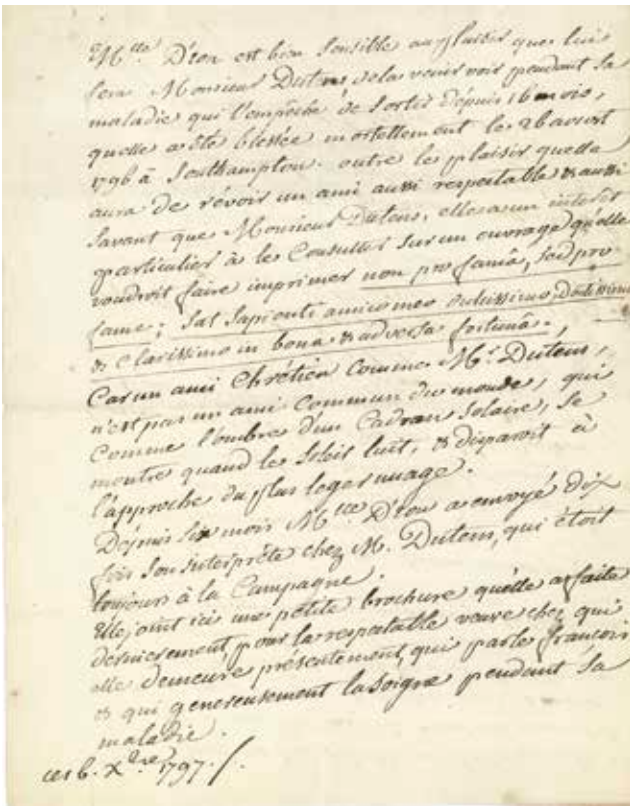 Mlle. D'eon est bien sensible au plaisir que lui
fera Monsieur Dutens de la venir voir pendant sa
maladie qui l'empêche de sortir depuis 16 mois,
quelle a été blessée mortellement le 26 aoust
1796 à Southampton. outre le plaisir quelle
aura de révoir un ami aussi respectable & aussi
savant que Monsieur Dutens, elle a un interêt
particulier à le Consulter sur un ouvrage qu'elle
voudroit faire imprimer non pro famâ, sed pro
fame; sat sapienti amico meo dulcissimo, Doctissimo
& Clarissimo in bona & adversa fortunâ.,
Car un ami Chrétien Comme Mr. Dutens,
n'est pas un ami Commun du monde, qui
Comme l'ombre d'un Cadran Solaire, se
montre quand le Soleil luit, & disparoit à
l'approche du plus leger nuage.
Depuis six mois Mlle D'eon a envoyé dix
fois son interprête chez M. Dutens, qui étoit
toujours à la Campagne.
Elle joint ici une petite brochure quélle a faite
dernierement pour la respectable veuve chez qui
elle demeure présentement, qui parle françois
& qui genereusement la soigne pendant sa
maladie.
ce 6. Xbre 1797.